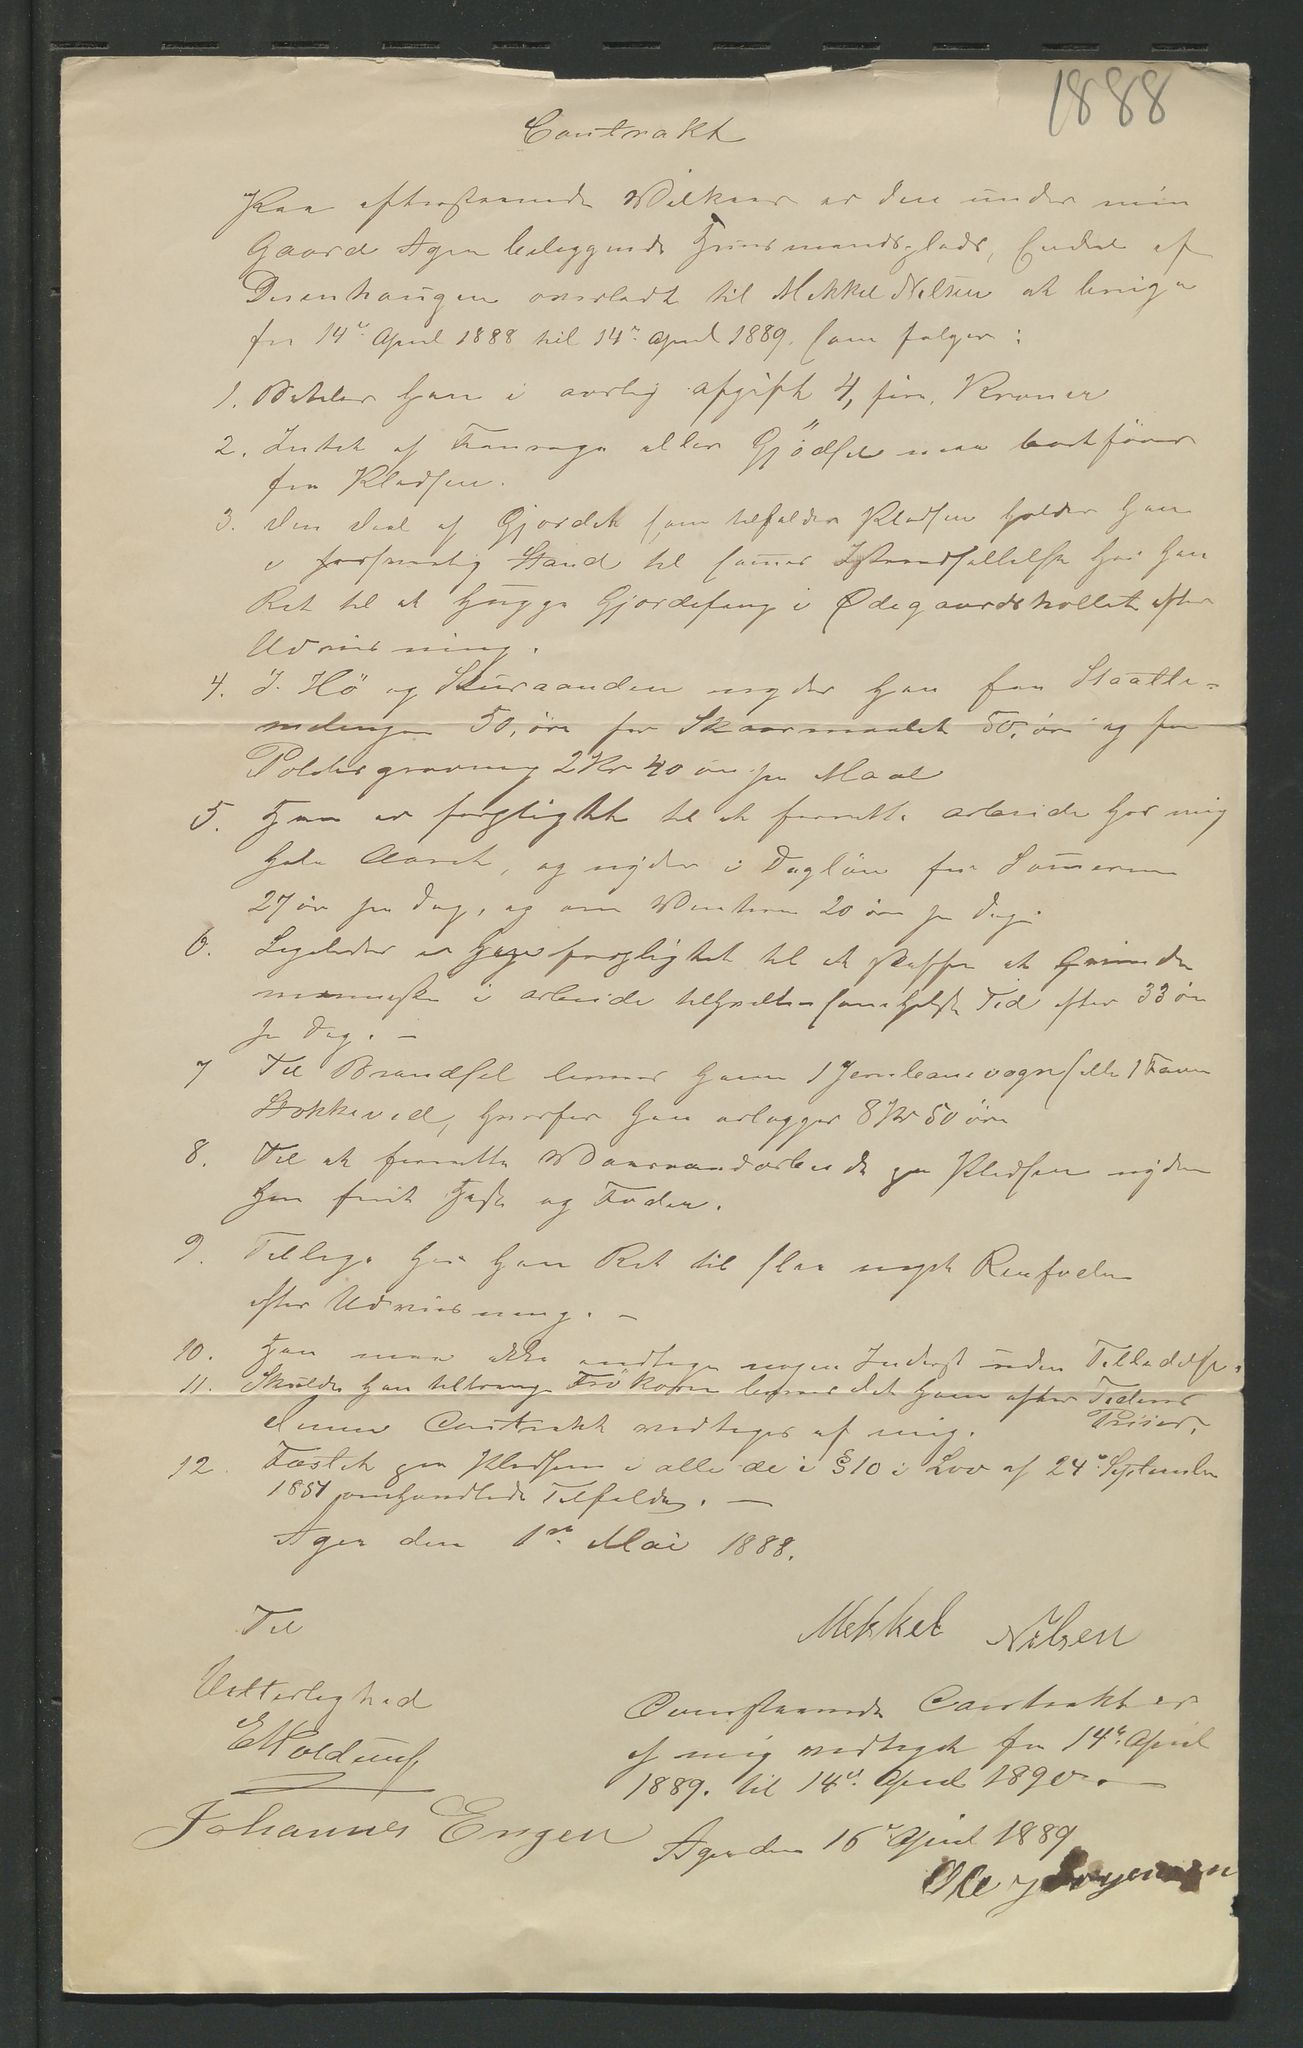 1888
Contrakt
Paa efterstaaende Vilkaar er den under min
Gaard Ager beliggende Huusmandsplads, Endel af
Desenhaugen overladt til Mekkel Nilsen at bruge
fra 14de April 1888 til 14de April 1889. som følger:
1. Betaler han i aarlig afgift 4, fire, Kroner
2. Intet af Fourage eller Gjødsel maa bortføres
fra Pladsen.
3. Den Deel af Gjærdet som tilfalder Pladsen holder han
i forsvarlig Stand til sammes Istandsættelse har han
Ret til at hugge Gjærdefang i Ødegaardskollet efter
Udviisning.
4. I Hö og Skuraanden nyder han for
50, øre for Skaarmaalet 50, øre og for
Poteisgravning 2 Kr 40 øre pr Maal
5. Han er forpligtet til at forrette arbeide hos mig
hele Aaret, og nyder i Dagløn for Sommeren
27 øre pr Dag, og om Vinteren 20 øre pr Dag.
6. Ligeledes er han forpligtet til at skaffe et Qvinde
menneske i arbeide tilhvilkensomhelst Tid efter 33 øre
pr Dag. —
7 Til Brændsel levnes ham 1 Jernbanevogn eller 1 Favn
Stokkeved, hvorfor han erlægger 8 Kr 50 øre
8. Til at forrette Vaaraandarbeide paa Pladsen nyder
han friit Heste og Foder.
9. Tillige har han Ret til slaa noget Reinfoder
efter Udviisning. —
10. Han maa ikke modtage nogen Inderst uden Tilladelse.
11. Skulde han tiltrænge Frökorn levnes det ham efter Tidens
Priser.
denne Contrakt vedtages af mig.
12. Fæstet paa Pladsen i alle de i § 10 i Lov af 24de September
1851 omhandlede Tilfælde. —
Ager den 1ste Mai 1888.
Til
Mekkel Nilsen
Vitterlighed
Johannes Engen
Ovenstaaende Contrakt er
af mig vedtaget fra 14de April
1889. til 14de April 1890. —
Ager den 16de April 1889
Ole Jörgensen